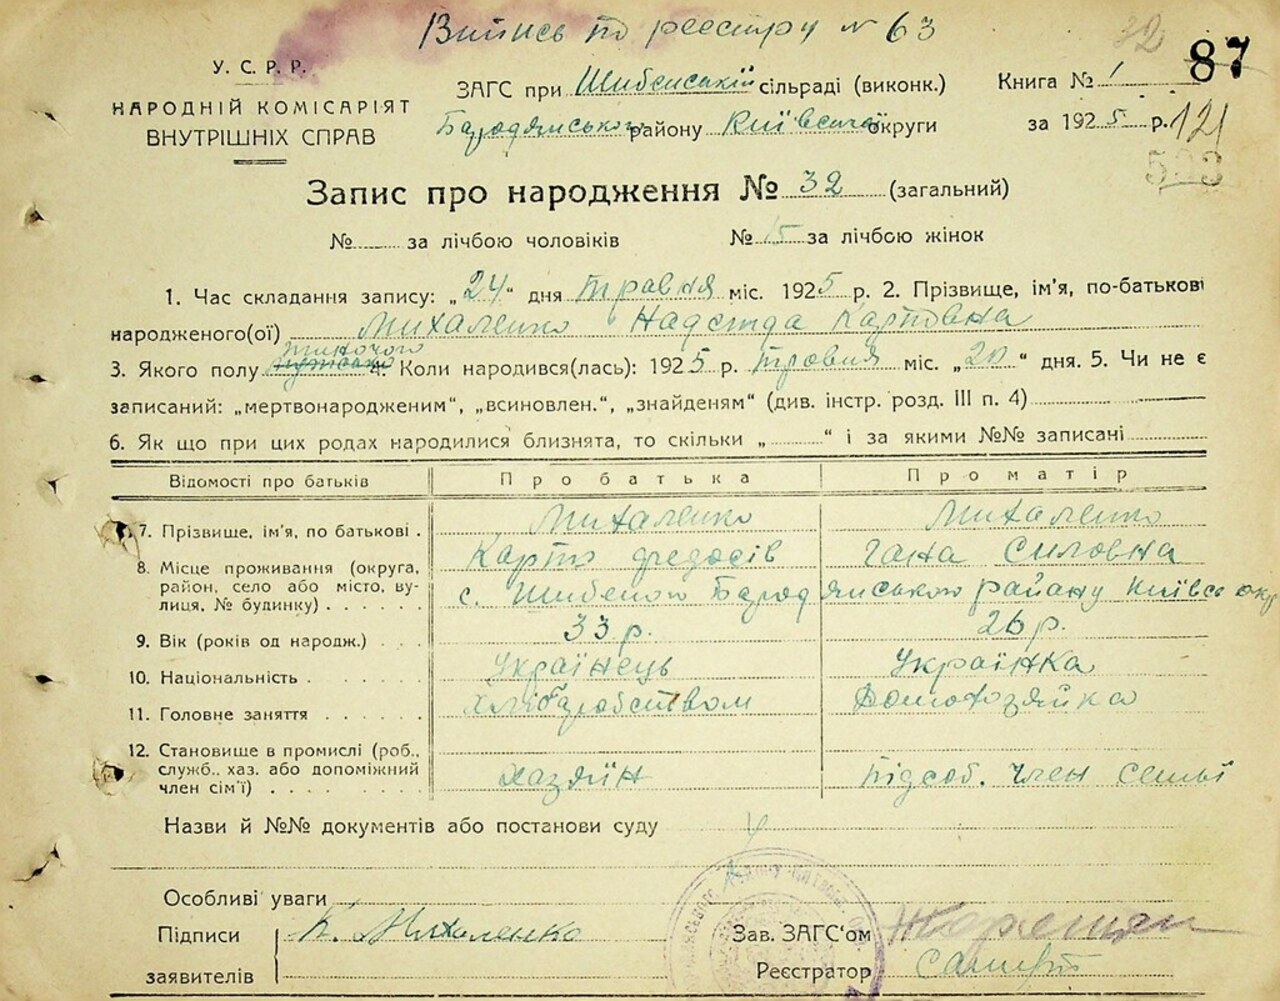 Випись по реєстру № 63
32 87
У. С. Р. Р.
НАРОДНІЙ КОМІСАРІЯТ
ВНУТРІШНІХ СПРАВ
ЗАГС при Шибенській сільраді (виконк.)
Бародянського району Київської округи
Книга № 1
за 1925 р. 121
Запис про народження № 32 (загальний)
№ за лічбою чоловіків № 15 за лічбою жінок
1. Час складання запису: „24" дня травня міс. 1925 р. 2. Прізвище, ім'я, по-батькові
народженого(ої) Михаленко Надежда Карповна
жіночого
3. Якого полу 4. Коли народився(лась): 1925 р. травня міс. „20" дня. 5. Чи не є
записаний: „мертвонародженим", „всиновлен.", „знайденям" (див. інстр. розд. III п. 4)
6. Як що при цих родах народилися близнята, то скільки „ " і за якими №№ записані
Відомості про батьків Про батька Про матір
7. Прізвище, ім'я, по батькові Михаленко Михаленко
Карпо Федосів Гана Силовна
8. Місце проживання (округа, район, село або місто, вулиця, № будинку) с. Шибеного Бародянського району Київсь окр
9. Вік (років од народж.) 33 р. 26 р.
10. Національність Українець Українка
11. Головне заняття хліборобством Домохозяйка
12. Становище в промислі (роб., служб., хаз. або допоміжний член сім'ї) хазяїн підсоб. член семьї
Назви й №№ документів або постанови суду
Особливі уваги
Підписи К. Михаленко Зав. ЗАГС'ом
заявителів Реєстратор